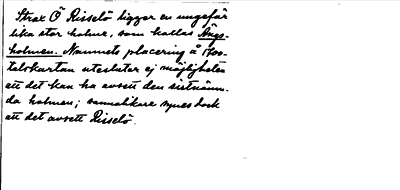 Strax Ö Risselö ligger en ungefär
lika stor holme, som kallas Ängs-
holmen. Namnets placering å 1700-
talskartan utesluter ej möjligheten
att det kan ha avsett den sistnämn-
da holmen; sannolikare synes dock
att det avsett Risselö.